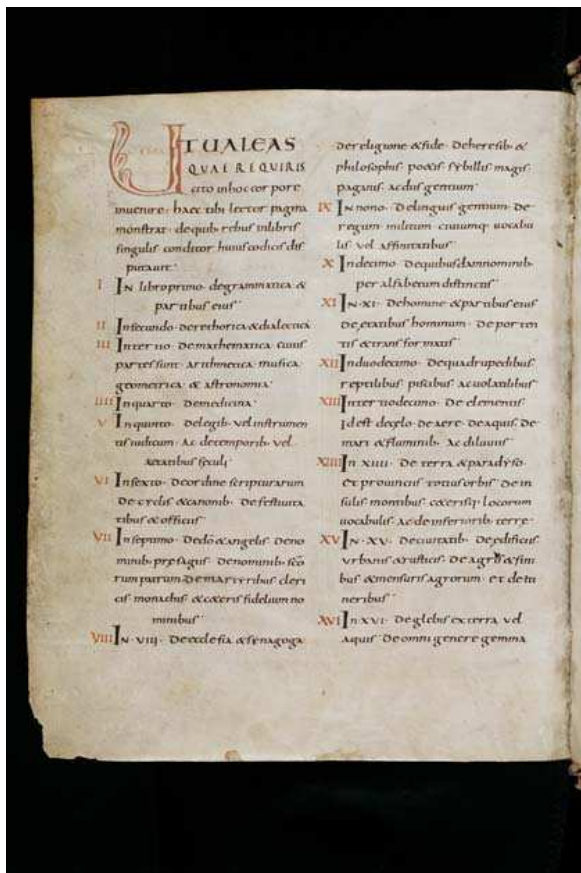 UT UALEAS
QUAE REQUIRIS
cito inhoc cor pore
inuenire· haec tibi lector pagina
monstrat· dequib; rebus inlibris
singulis conditor huius codicis dis
putauit·
I IN libro primo· degrammatica &
partibus eius·
II Insecundo· derethorica & dialectica
III Inter tio· demathematica cuius
partes sunt· arithmetica· musica·
geometrica· & astronomia·
IIII Inquarto· demedicina·
V Inquinto· delegib; vel instrumen
tis iudicum· Ac detemporib; vel
aetatibus seculi·
VI Insexto· De ordine scripturarum
De cyclis & canonib; De festiuita
tibus & officiis·
VII Inseptimo· De dō & angelis· De no
minib; presagis· De nominib; scō
rum patrum· De martyribus cleri
cis monachis & ceteris fidelium no
minibus·
VIII IN· VIII· De ecclesia & synagoga·
de religione & fide· De heresib; &
philosophis· poetis· sybillis· magis·
paganis· ac diis gentium·
IX In nono· De linguis gentium· De
regum· militum ciuiumq; uocabu
lis vel affinitatibus·
X In decimo· De quibusdam nominib;
per alfabetum distinctis·
XI IN· XI· De homine & partibus eius·
De etatibus hominum· De porten
tis & trans formatis·
XII In duodecimo· De quadrupedibus
reptilibus piscibus ac uolatilibus·
XIII Inter tiodecimo· De elementis·
Id est de celo· de aere· De aquis· De
mari & fluminib; Ac diluuiis·
XIIII In XIIII· De terra & paradyso·
Et prouinciis totius orbis· De in
sulis montibus ceterisq; locorum
uocabulis· Ac de inferiorib; terre·
XV IN· XV· De ciuitatib; De edificiis
urbanis & rusticis· De agris & fini
bus & mensuris agrorum· et de iti
neribus·
XVI In XVI· De glebis ex terra vel
aquis· De omni genere gemma